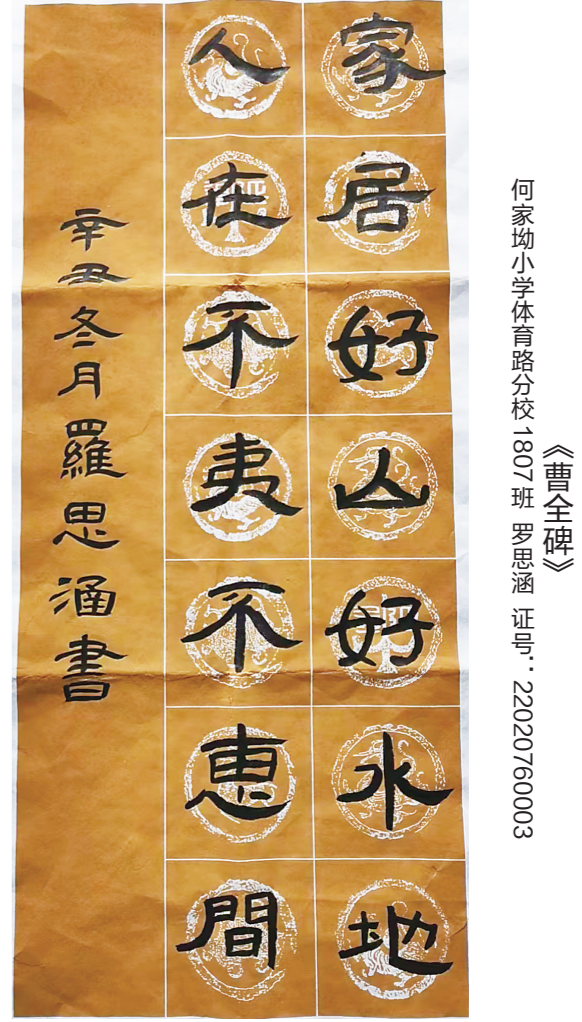 《曹全碑》
何家坳小学体育路分校 1807 班 罗思涵 证号：22020760003
家居好山好水地
人在不夷不惠間
辛丑冬月羅思涵書